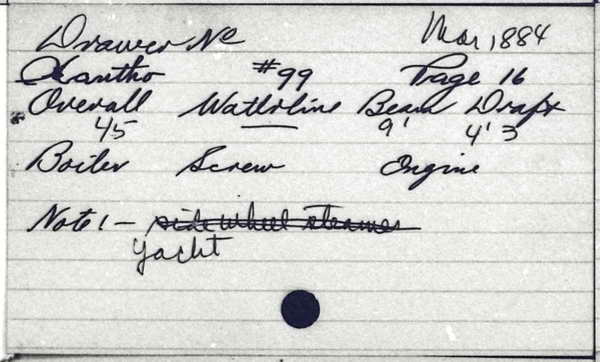 Drawer No Mar, 1884
Xantho #99 Page 16
Overall Waterline Beam Draft
45 — 9' 4' 3
Boiler Screw Engine
Note:- side wheel steamer
yacht